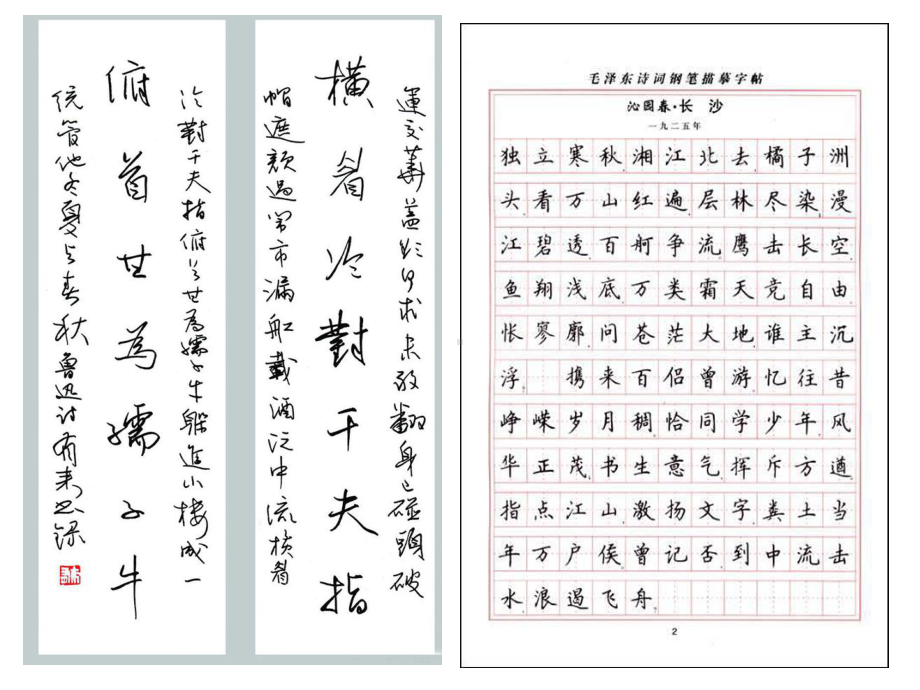 運交華蓋欲何求未敢翻身已碰頭破
橫眉冷對千夫指
帽遮顏過鬧市漏船載酒泛中流橫眉
冷對千夫指俯首甘為孺子牛躲進小樓成一
俯首甘為孺子牛
統管他冬夏与春秋魯迅詩
毛泽东诗词钢笔描摹字帖
沁园春·长 沙
一九二五年
独立寒秋湘江北去橘子洲
头看万山红遍层林尽染漫
江碧透百舸争流鹰击长空
鱼翔浅底万类霜天竞自由
怅寥廓问苍茫大地谁主沉
浮 携来百侣曾游忆往昔
峥嵘岁月稠恰同学少年风
华正茂书生意气挥斥方遒
指点江山激扬文字粪土当
年万户侯曾记否到中流击
水浪遏飞舟
2